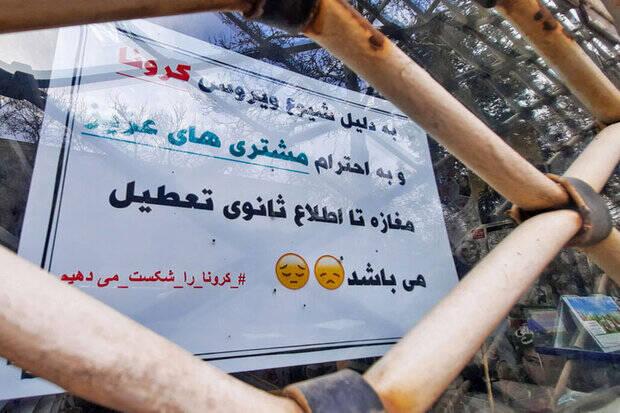 به دلیل شیوع ویروس کرونا
و به احترام مشتری های عزیز
مغازه تا اطلاع ثانوی تعطیل
می باشد😞😔
#_کرونا_را_شکست_می دهیم